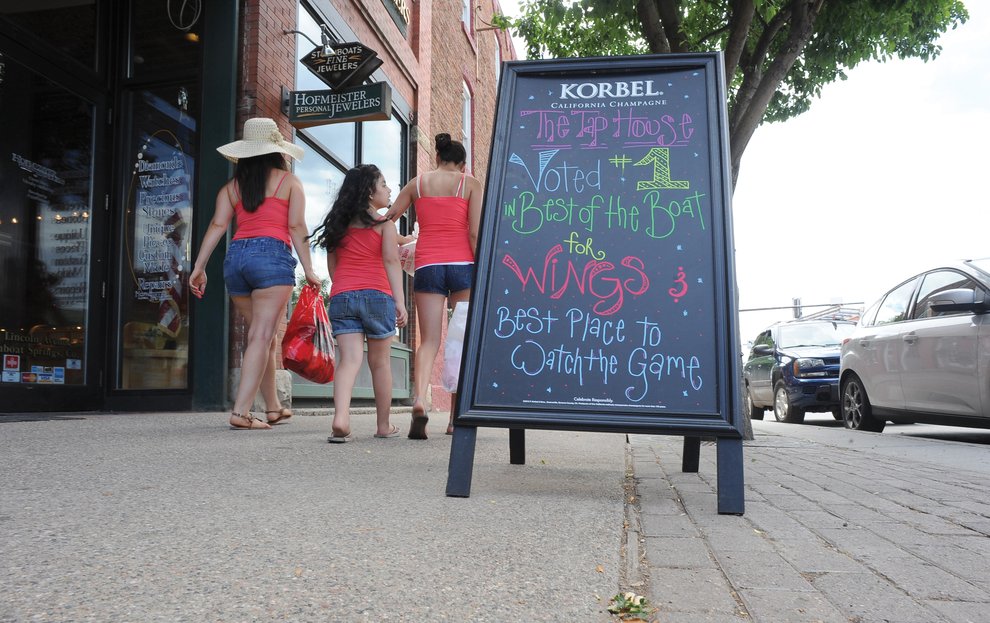 STEAMBOAT'S
FINE
JEWELERS
HOFMEISTER
PERSONAL JEWELERS
Diamonds
Watches
Precious
Stones
Unique
Pieces
Custom
Made
Repairs
Lincoln Avenue
KORBEL®
CALIFORNIA CHAMPAGNE
The Tap House
Voted #1
in Best of the Boat
for
WINGS &
Best Place to
Watch the Game
Celebrate Responsibly.